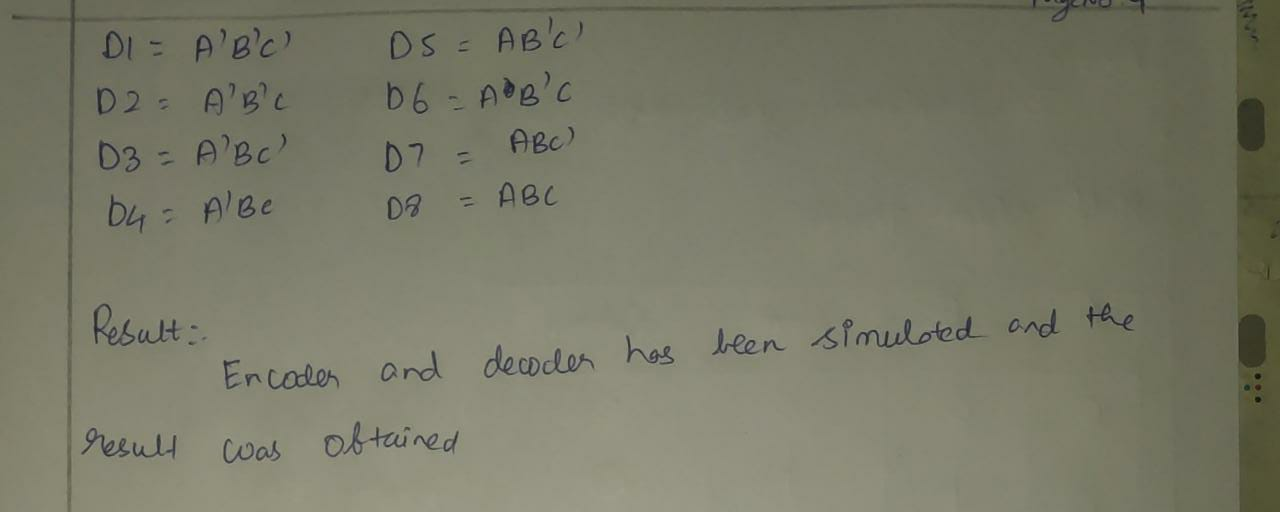 D1 = A'B'C' D5 = AB'C'
D2 = A'B'C D6 = AB'C
D3 = A'BC' D7 = ABC'
D4 = A'BC D8 = ABC
Result:-
Encoder and decoder has been simulated and the
result was obtained